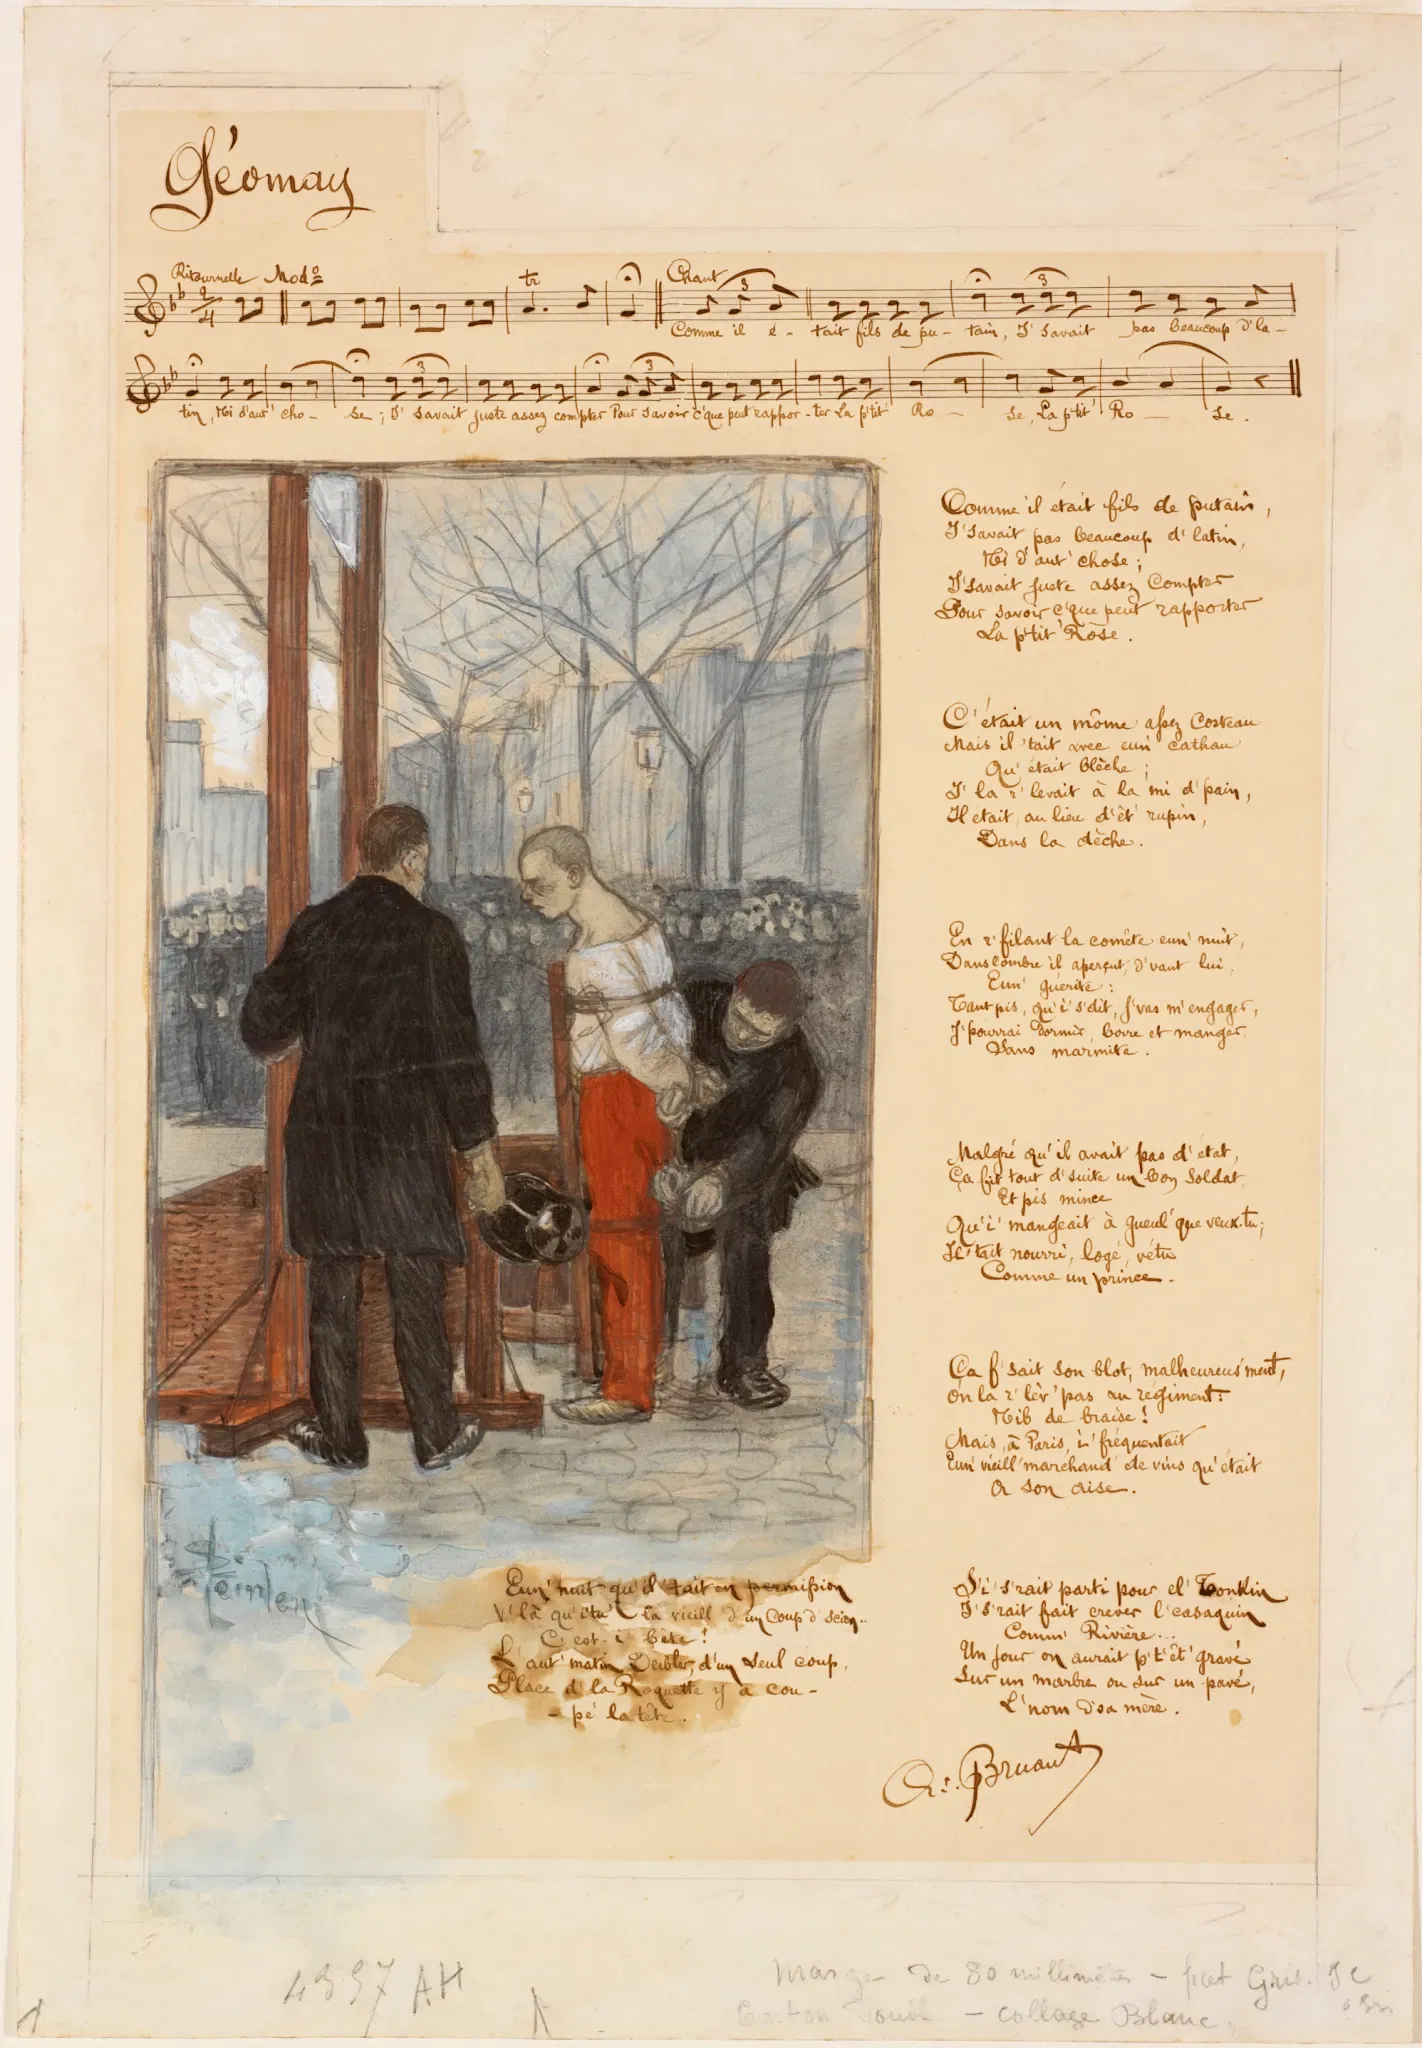 Géomay
Ritournelle Modº
tr
Chant
3
3
Comme il é- tait fils de pu- tain, I' savait pas beaucoup d'la-
3
3
tin, Ni d'aut' cho- se; I' savait juste assez compter Pour savoir c'que peut rappor-ter La p'tit' Ro- se, La p'tit' Ro- se.
Comme il était fils de putain,
I' savait pas beaucoup d'latin,
Ni d'aut' chose;
I' savait juste assez compter
Pour savoir c'que peut rapporter
La p'tit' Rose.
C'était un môme assez costeau
Mais il 'tait avec eun' cathau
Qu'était blèche;
I' la r'levait à la mi d'pain,
Il était, au lieu d'êt' rupin,
Dans la dèche.
En r'filant la comète eun' nuit,
Dans l'ombre il aperçut, d'vant lui,
Eun' guérite:
Tant pis, qu'i's'dit, j'vas m'engager,
J'pourrai dormir, boire et manger
Sans marmite.
Malgré qu'il avait pas d'état,
Ça fit tout d'suite un bon soldat
Et pis mince
Qu'i' mangeait à gueul' que veux-tu;
Il 'tait nourri, logé, vêtu
Comme un prince.
Ça f'sait son blot, malheureus'ment,
On la r'lèv' pas au régiment:
Nib de braise!
Mais, à Paris, i' fréquentait
Eun' vieill' marchand' de vins qu'était
A son aise.
Eun' nuit qu'il 'tait en permission
V'là qu'i tu' la vieill' d'un coup d'scion..
C'est-i' bête!
L'aut' matin, Deibler, d'un seul coup,
Place d'la Roquette y a cou-
-pé la tête.
S'i' s'rait parti pour el' Tonkin
I' s'rait fait crever l'casaquin
Comm' Rivière...
Un jour on aurait p't'êt' gravé
Sur un marbre ou sur un pavé,
L'nom d'sa mère.
Steinlen
Ar. Bruant
4397 AH
Marge de 80 millimètres -
- collage Blanc